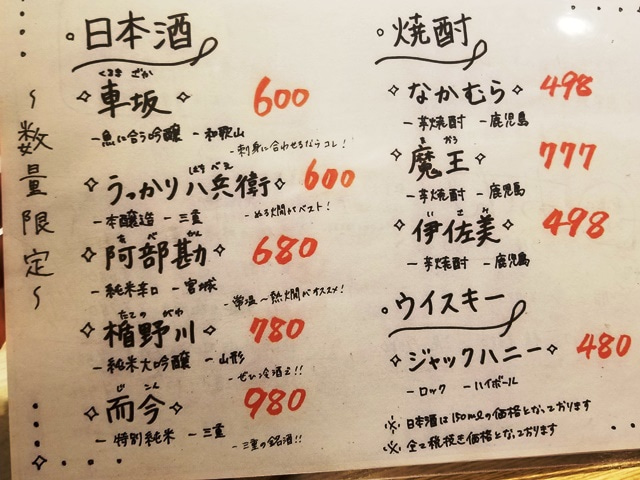 〜数量限定〜
日本酒
くるまざか
車坂 600
－魚に合う吟醸 －和歌山
－刺身に合わせるならコレ!
はちべえ
うっかり八兵衛 600
－本醸造 －三重
－ぬる燗がベスト!
あべかん
阿部勘 680
－純米辛口 －宮城
－常温〜熱燗がオススメ!
たての がわ
楯野川 780
－純米大吟醸 －山形
－ぜひ冷酒で!!
じこん
而今 980
－特別純米 －三重
－三重の銘酒!!
焼酎
なかむら 498
－芋焼酎 －鹿児島
まおう
魔王 777
－芋焼酎 －鹿児島
いさみ
伊佐美 498
－芋焼酎 －鹿児島
ウイスキー
ジャックハニー 480
－ロック －ハイボール
※日本酒は150mlの価格となっております
※全て税抜き価格となっております